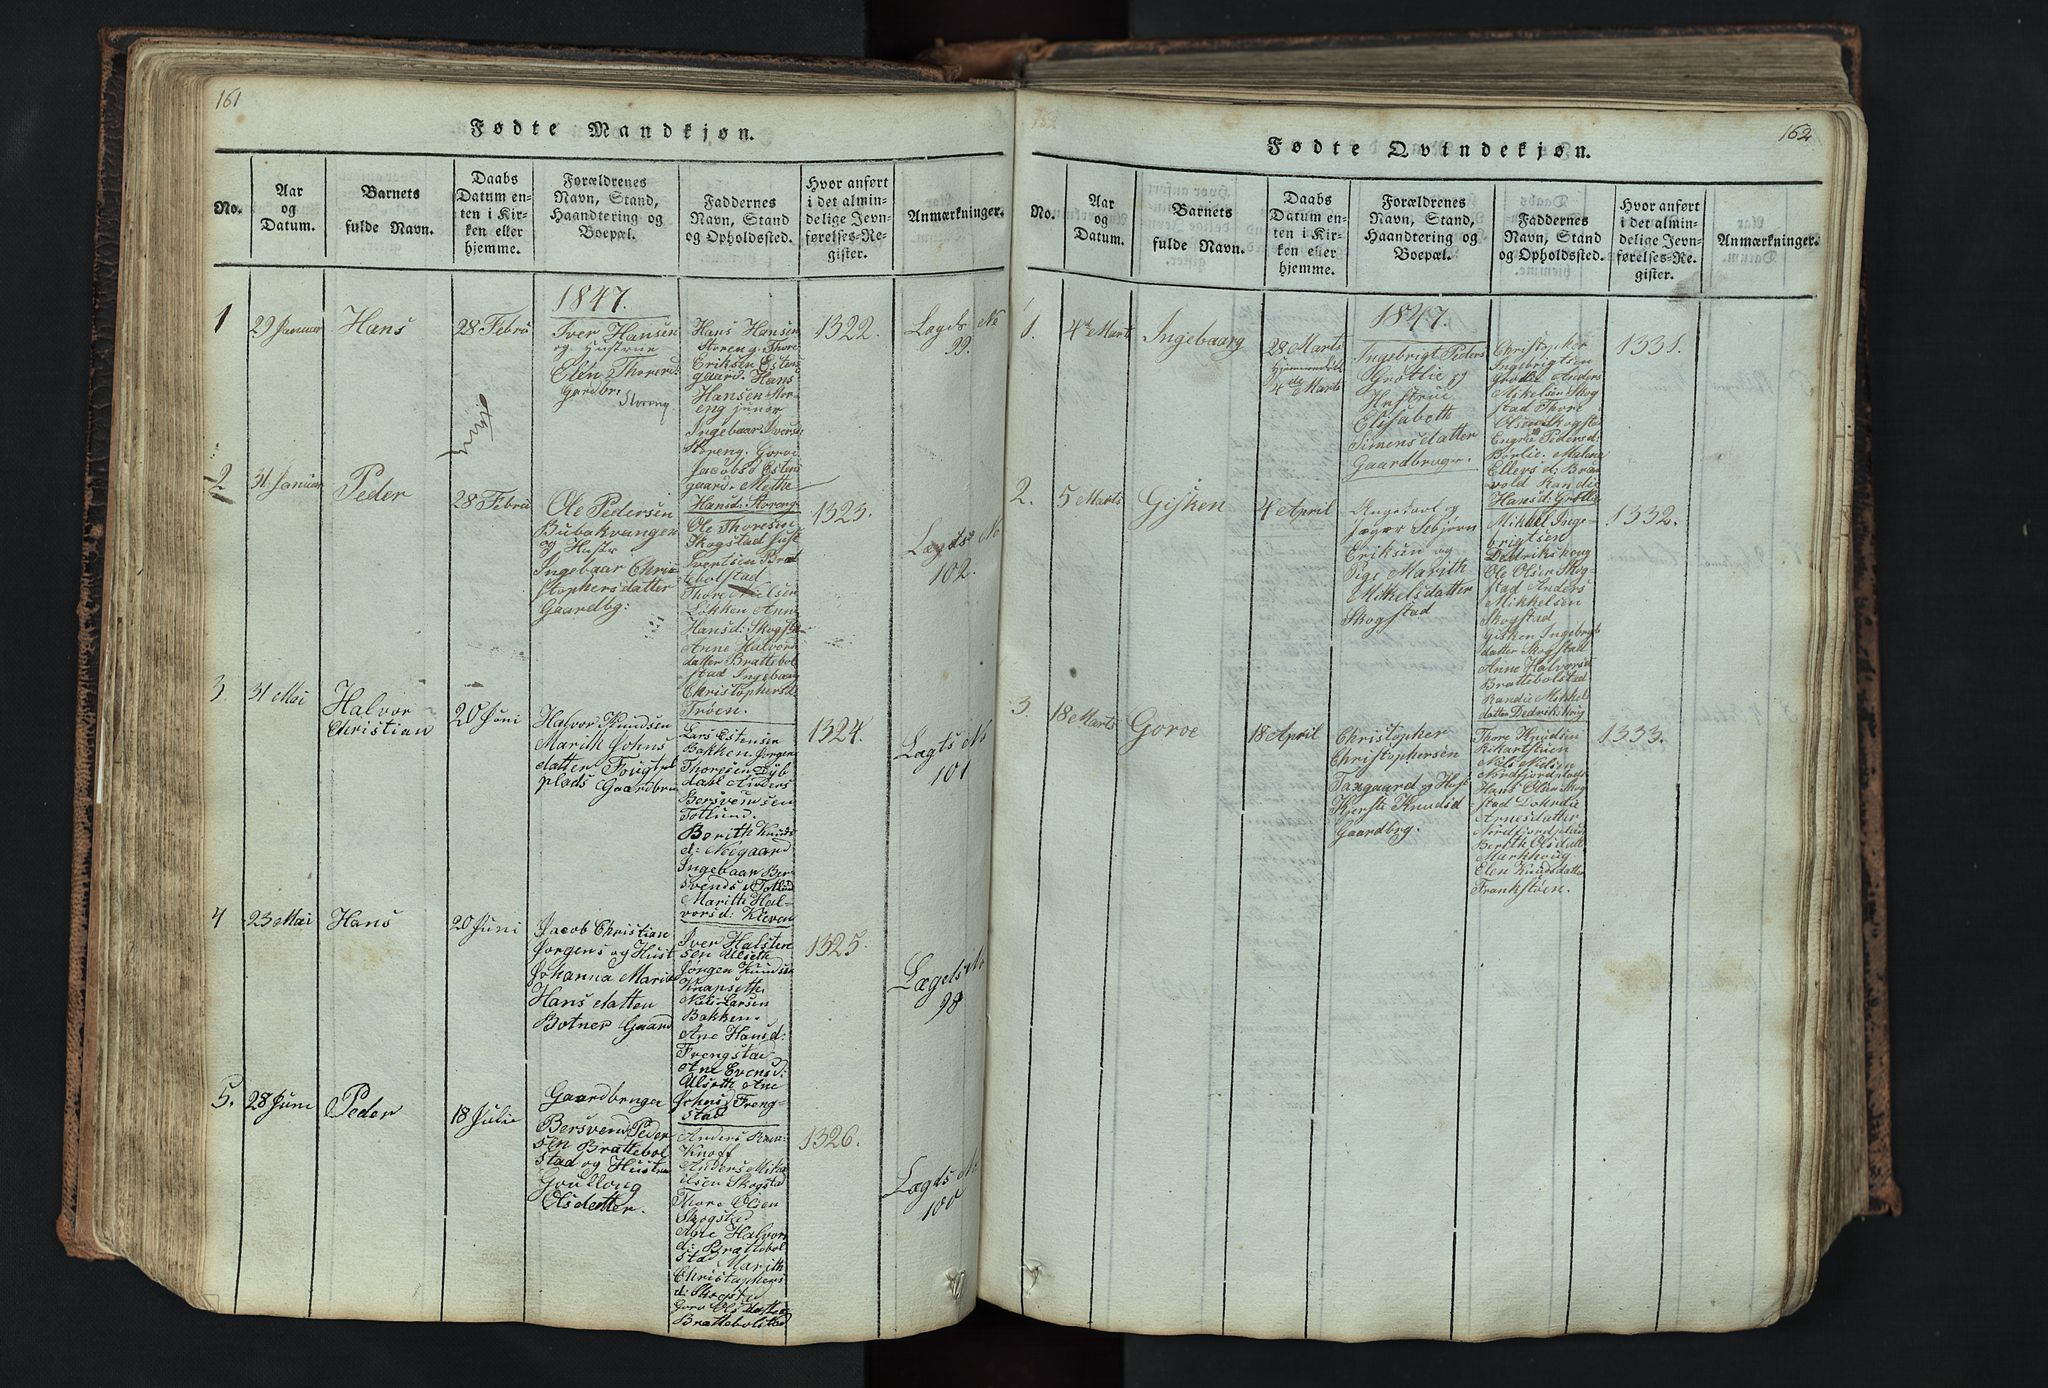 161
Fødte Mandkjøn.
No.
Aar
og
Datum.
Barnets
fulde Navn.
Daabs
Datum en-
ten i Kir-
ken eller
hjemme.
Forældrenes
Navn, Stand,
Haandtering og
Boepæl.
Faddernes
Navn, Stand
og Opholdssted.
Hvor anført
i det almin-
delige Jevn-
førelses-Re-
gister.
Anmærkninger.
1847.
1
29 Januar
Hans
28 Febru
Iver Hansen
og Hustrue
Elen Thores:
Gardbr.
Storeng.
Hans Hansen
Storeng. Thore
Eriksen Estens
gaard. Hans
Hansen Stor-
eng junor
Ingebaar Iversd
Storeng. Gorvi
Jacobsd Estens
gaard. Methe
Hansd: Storeng
1322.
Lægds No
99.
2
31 Januar
Peder
28 Febru
Ole Pedersen
Bubakvangen
og Hustr
Ingebaar Chri-
stophersdatter
Gaardbg:
Ole Thoresen
Skogstad Just
Ivertsen Brat
tebolstad
Thore Nielsen
Løkken Anne
Hansd: Skogstd
Anne Halvors
datter Brattebol
stad Ingebaar
Christophersd
Trøen.
1323.
Lægds No
102.
3
31 Mai
Halvor
Christian
20 Juni
Halvor Knudsen
Marith Johns
datter Fougstad
plads Gaardbru
Lars Estensen
Bakken Jørgen
Thoresen Dyb
dahl Anders
Bersvendsen
Totlund.
Berith Knuds
d: Neegaard
Ingebaar Ber
svends d Totlund
Marith Hal-
vorsd: Kleven
1324.
Lægts No
101
4
23 Mai
Hans
20 Juni
Jacob Christian
Jørgens og Hust
Johanna Maria
Hans datten
Botner Gaard
Iver Halsten
sen Ulseth
Jørgen Knudsen
Knapsette
Nils Larsen
Bakken.
Ane Hansd:
Frengstad
Ane Evensd:
Ulseth Ane
Johnsd Freng-
stad
1325.
Lægds No
98
5.
28 Juni
Peder
18 Julie
Gaardbruger
Bersvend Peder
sen Brattebol
stad og Hustru
Goullaug
Olsdatter.
Anders
Knoff
Anders Mik
elsen Skogstd
Thore Olsen
Skogstad
Ane Halvors
d: Brattebol
stad Marith
Christophers
d: Skogstd
Goro Ols datter
Brattebolstad
1326.
Lægds No
100
162
Fødte Qvindekjøn.
No.
Aar
og
Datum.
Barnets
fulde Navn.
Daabs
Datum en-
ten i Kir-
ken eller
hjemme.
Forældrenes
Navn, Stand,
Haandtering og
Boepæl.
Faddernes
Navn, Stand
og Opholdssted.
Hvor anført
i det almin-
delige Jevn-
førelses-Re-
gister.
Anmærkninger.
1847.
1.
4de Marts
Ingebaarg
28 Marts
Hjemmedøbt
4de Marts
Ingebrigt Peders
Grøtlie og
Hustrue
Elisabeth
Simensdatter
Gaardbruger.
Christopher
Ingebrigtsen
Grøtlie Anders
Mikelsen Skog
stad Thore
Olsen Skogsta
Engre Pedersd:
Børlie. Malena
Ellers d: Bræ
vold Randie
Hansd: Grøtlie
1331.
2.
5 Marts
Gisken
4 April
Ungkarl og
Jæger Sebjørn
Eriksen og
Pige Marith
Mikkelsdatter
Skogstad
Mikkel Inge-
brigtsen
Dedrikshoug
Ole Olsen Skog-
stad Anders
Mikkelsen
Skogstad
Gisken Ingebrigts
datter Skogstad
Anne Halvorsd
Brattebolstad
Randie Mikkel
datter Dedrikshoug
1332.
3.
18 Marts
Goroe
18 April
Christopher
Christophersen
Taxgaard og Hus
Kjersti Knudsd
Gaardbrg.
Thore Knudsen
Kikartstuen
Nils Nilsen
Nordfjordpladsn
Hans Olsen Skog
stad Dorhdie
Arnesdatter
Nordfjordplads
Berith Olsdatte
Markhoug
Elen Knudsdatter
Frankstuen.
1333.